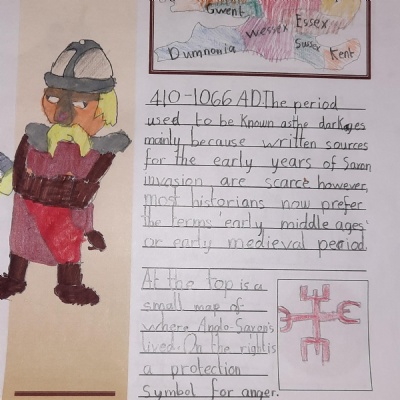 Gwent
Wessex Essex
Dumnonia Sussex Kent
410-1066 AD.The period
used to be known asthe darkages
mainly because written sources
for the early years of Saxon
invasion are scarce however,
most historians now prefer
the terms 'early middle ages'
or early medieval period.
At the top is a
small map of
where Anglo-Saxon's
lived. On the right is
a protection
symbol for anger.